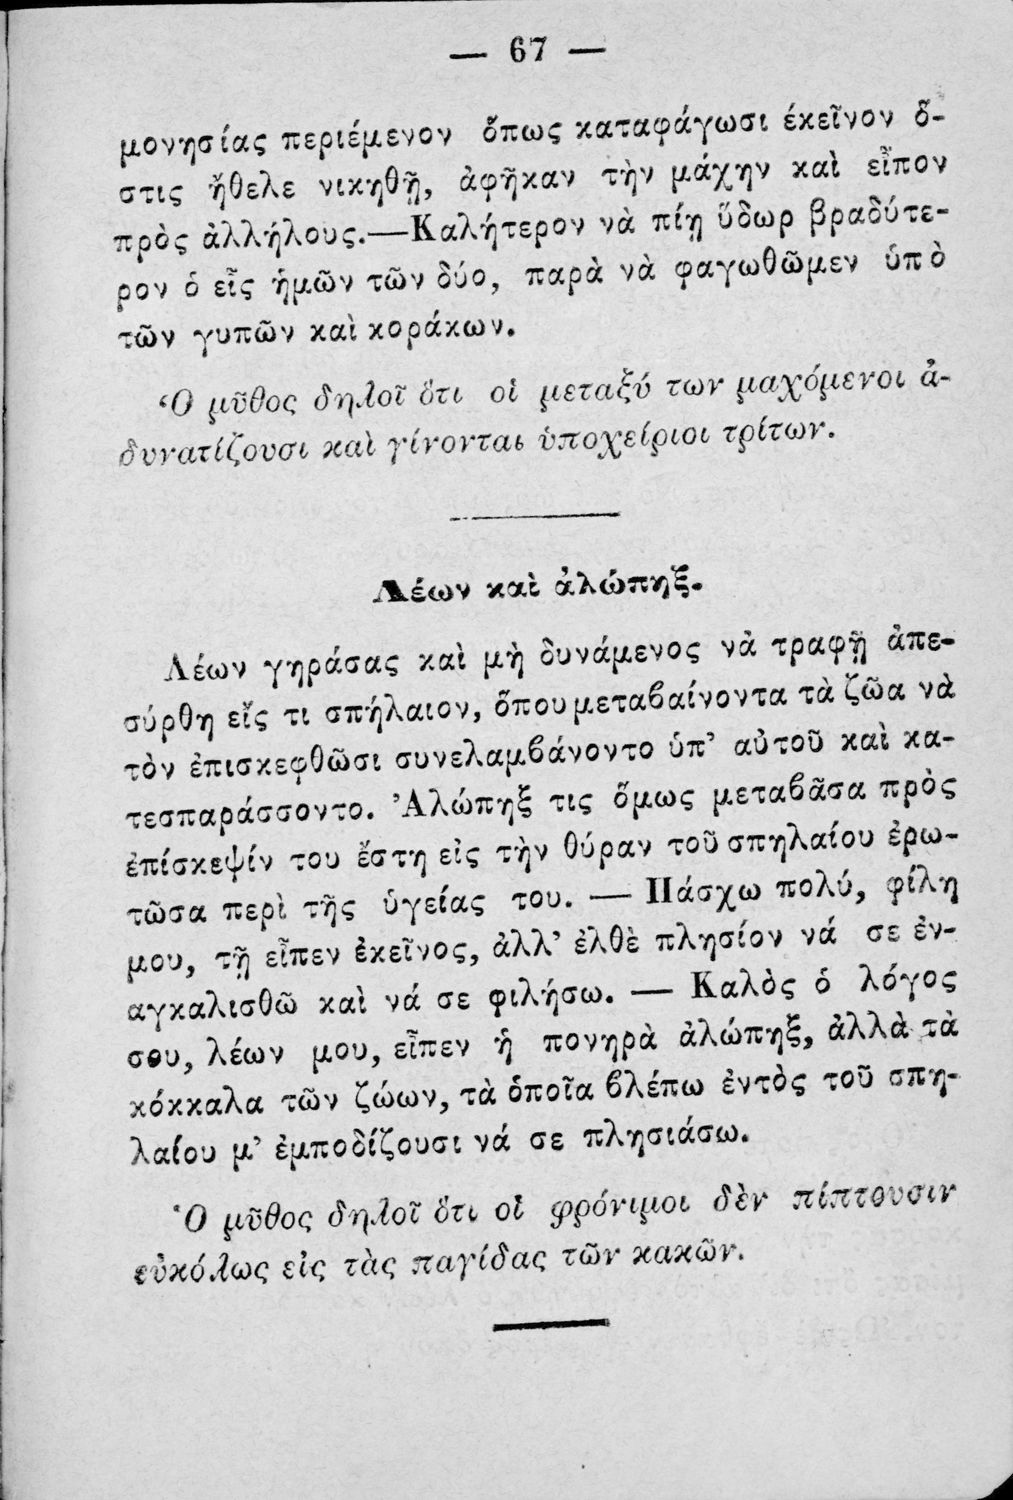 — 67 —
μονησίας περιέμενον ὅπως καταφάγωσι ἐκεῖνον ὅ-
στις ἤθελε νικηθῇ, ἀφῆκαν τὴν μάχην καὶ εἶπον
πρὸς ἀλλήλους.—Καλήτερον νὰ πίῃ ὕδωρ βραδύτε-
ρον ὁ εἷς ἡμῶν τῶν δύο, παρὰ νὰ φαγωθῶμεν ὑπὸ
τῶν γυπῶν καὶ κοράκων.
Ὁ μῦθος δηλοῖ ὅτι οἱ μεταξύ των μαχόμενοι ἀ-
δυνατίζουσι καὶ γίνονται ὑποχείριοι τρίτων.
Λέων καὶ ἀλώπηξ.
Λέων γηράσας καὶ μὴ δυνάμενος νὰ τραφῇ ἀπε-
σύρθη εἴς τι σπήλαιον, ὅπου μεταϐαίνοντα τὰ ζῶα νὰ
τὸν ἐπισκεφθῶσι συνελαμϐάνοντο ὑπ’ αὐτοῦ καὶ κα-
τεσπαράσσοντο. Ἀλώπηξ τις ὅμως μεταϐᾶσα πρὸς
ἐπίσκεψίν του ἔστη εἰς τὴν θύραν τοῦ σπηλαίου ἐρω-
τῶσα περὶ τῆς ὑγείας του. — Πάσχω πολύ, φίλη
μου, τῇ εἶπεν ἐκεῖνος, ἀλλ’ ἐλθὲ πλησίον νά σε ἐν-
αγκαλισθῶ καὶ νά σε φιλήσω. — Καλὸς ὁ λόγος
σου, λέων μου, εἶπεν ἡ πονηρὰ ἀλώπηξ, ἀλλὰ τὰ
κόκκαλα τῶν ζώων, τὰ ὁποῖα ϐλέπω ἐντὸς τοῦ σπη-
λαίου μ’ ἐμποδίζουσι νά σε πλησιάσω.
Ὁ μῦθος δηλοῖ ὅτι οἱ φρόνιμοι δὲν πίπτουσιν
εὐκόλως εἰς τὰς παγίδας τῶν κακῶν.